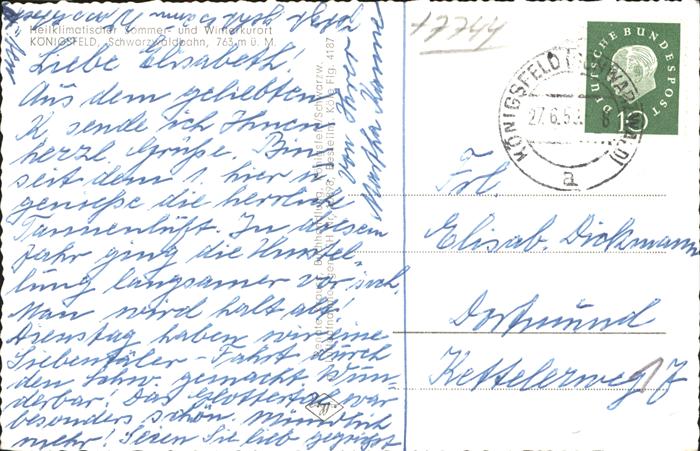 Heilklimatischer Sommer- und Winterkurort
KÖNIGSFELD, Schwarzwaldbahn, 763 m ü. M.
Liebe Elisabeth!
Aus dem geliebten
K. sende ich Ihnen
herzl. Grüße. Bin
seit dem 1. hier u.
genieße die herrliche
Tannenluft. In diesem
Jahr ging die Umstel-
lung langsamer vor sich.
Man wird halt alt!
Dienstag haben wir eine
Siebentäler-Fahrt durch
den Schw. gemacht. Wun-
derbar! Das Glottertal war
besonders schön. Mündlich
mehr! Seien Sie lieb gegrüßt
von Ihrer
Martha
Königsfeld/Schwarzw.
Bestell-Nr. Köla Flg. 4187
+7744
DEUTSCHE BUNDESPOST
10
KÖNIGSFELD (SCHWARZWALD)
27.6.59. 8
a
Frl.
Elisab. Dickmann
Dortmund
Kettelerweg